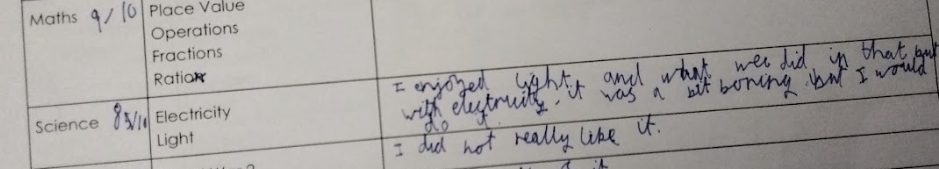 Maths 9/10 Place Value
Operations
Fractions
Ratio
I enjoyed light, and what wee did in that but
with electruity, it was a bit boning but I would
Science 8 Electricity
do
Light
I did not really like it.
it